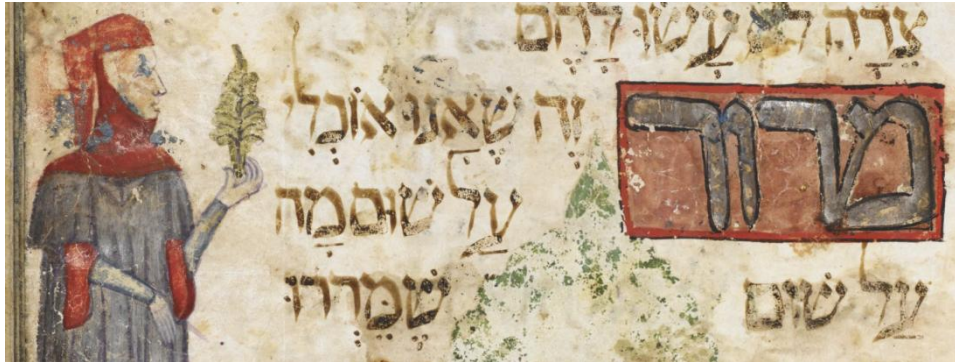 צֵדָה לֹא עָשׂוּ לָהֶם
מרור
זֶה שֶׁאָנוּ אוֹכְלִי
עַל שׁוּם מַה
עַל שׁוּם שֶׁמֵּרְרוּ